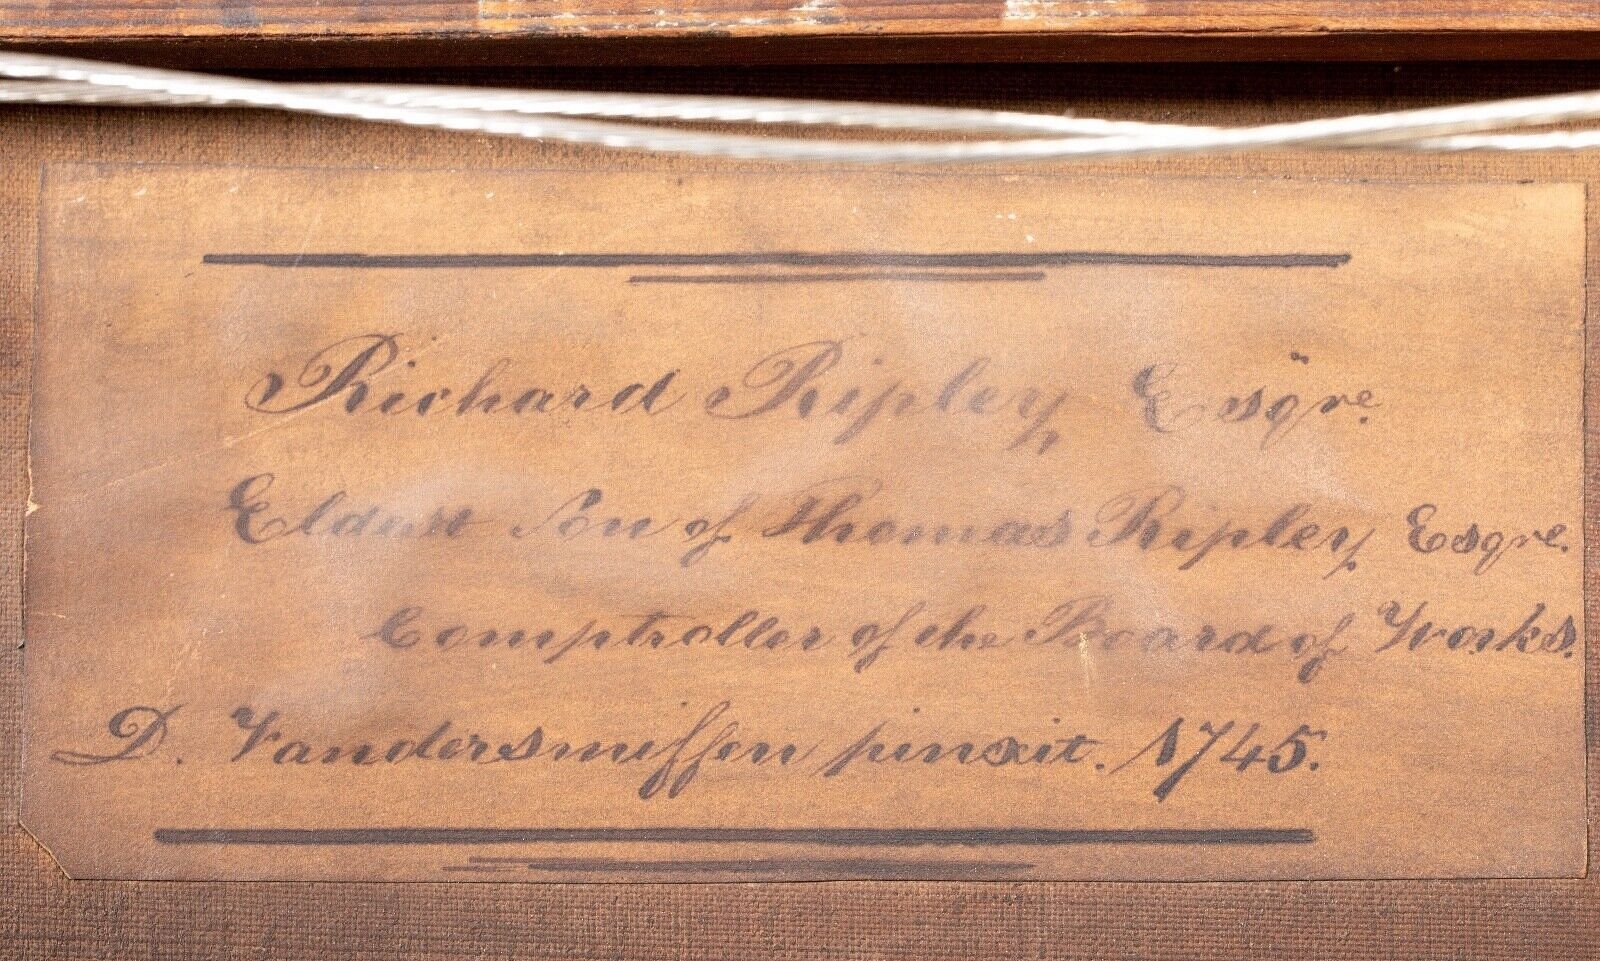 Richard Ripley Esqre.
Eldest Son of Thomas Ripley Esqre.
Comptroller of the Board of Works.
D. Vandersmissen pinxit. 1745.